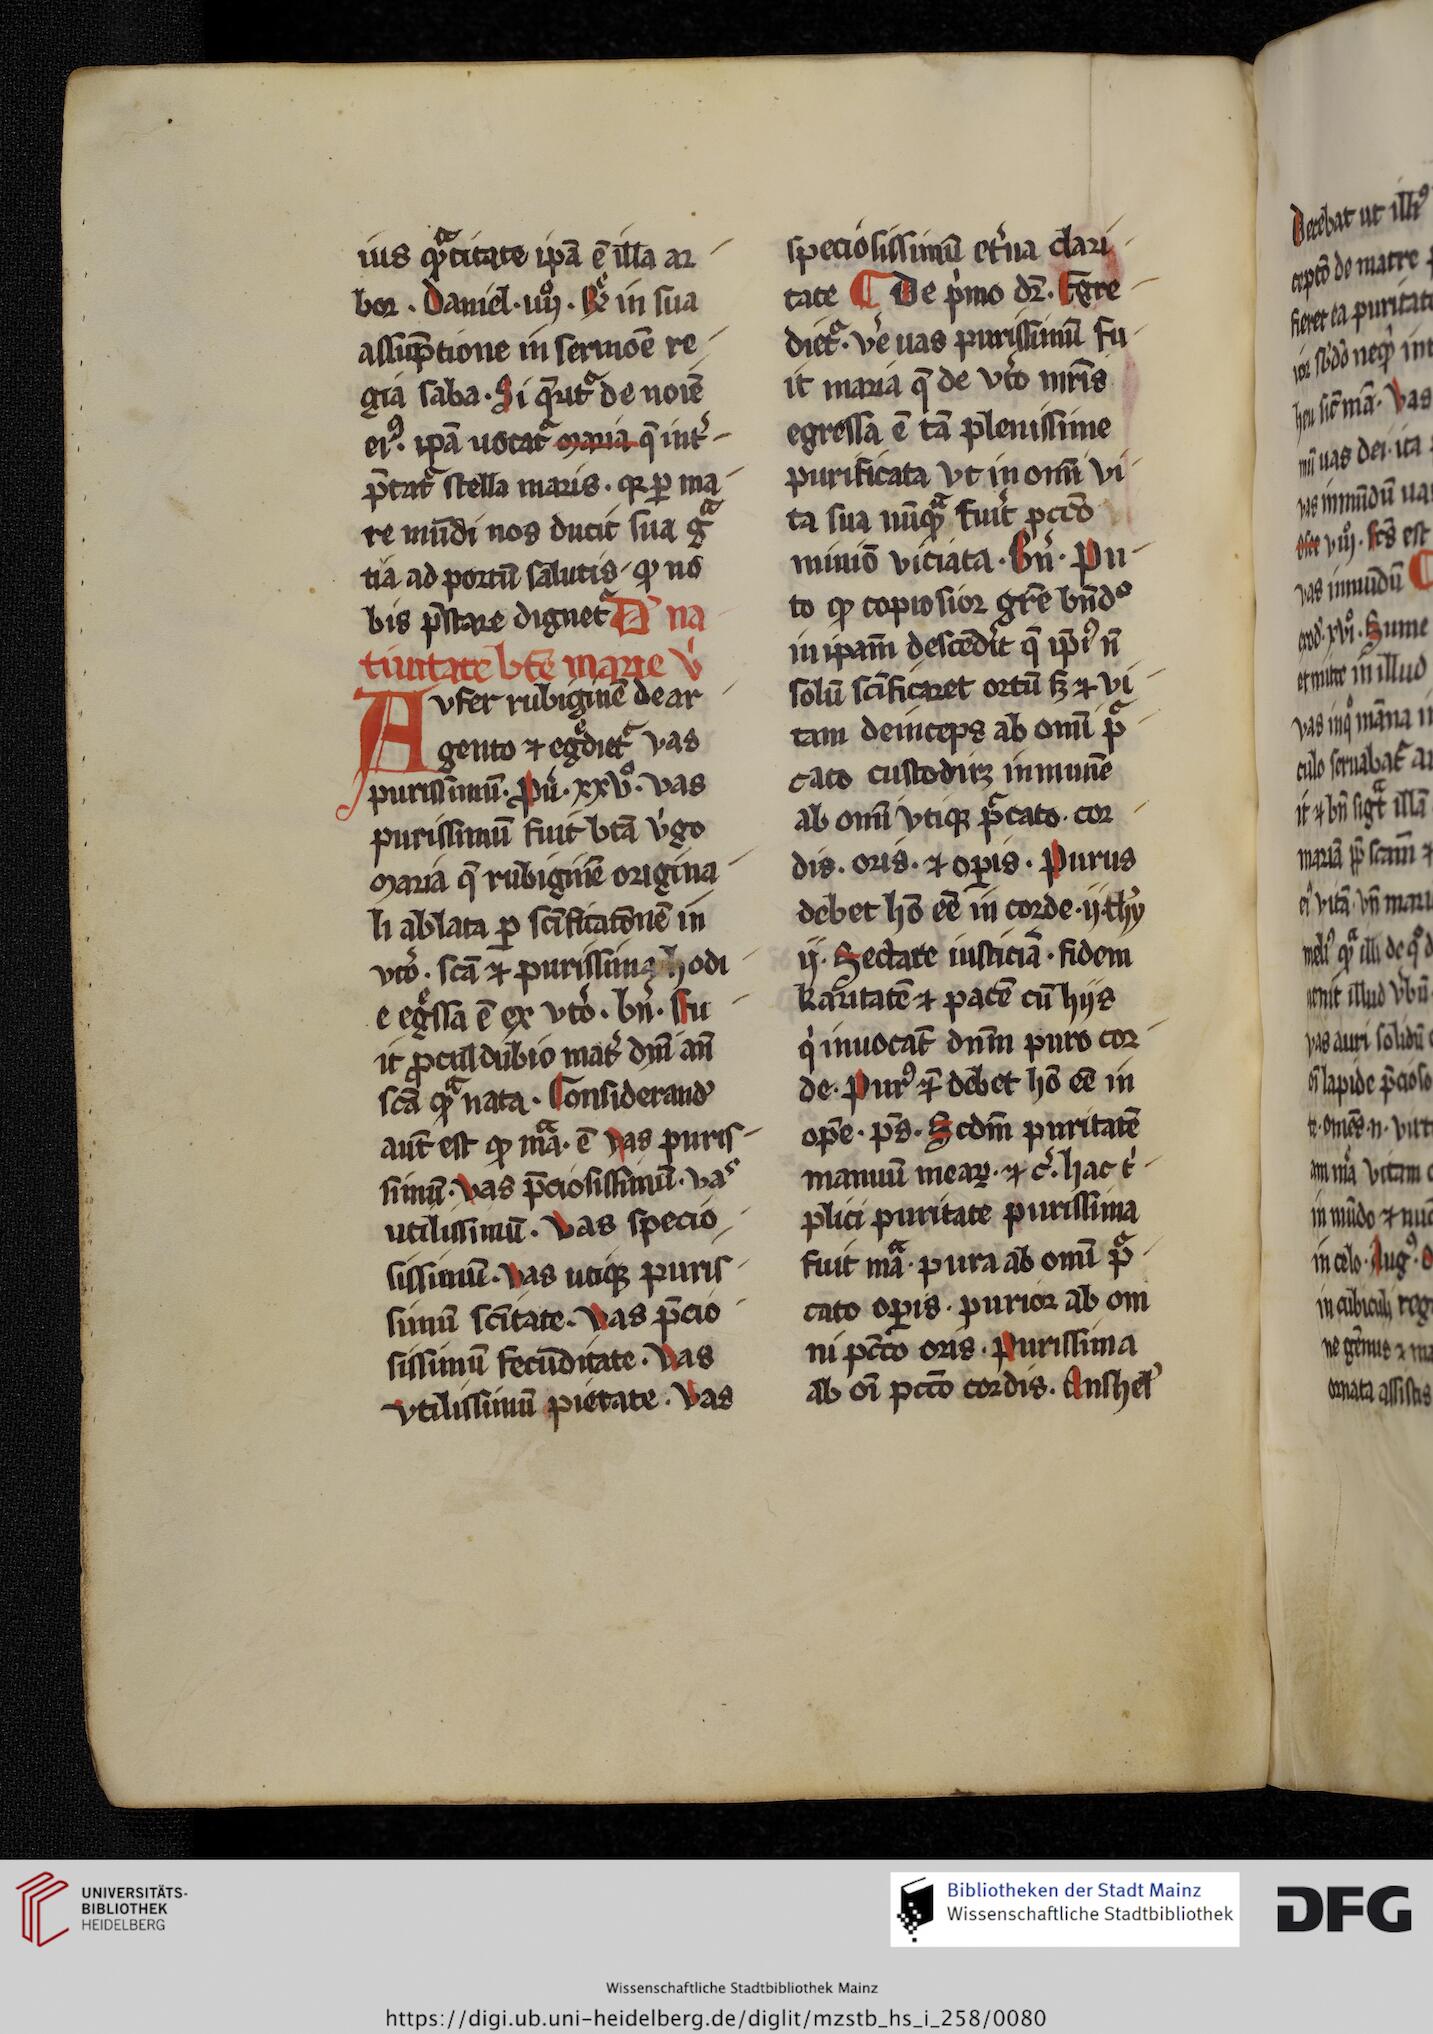 ius qͣntitate ipā ē illa ar
bor. Daniel. iiijͦ. Rͤ in sua
assūptione in sermōe re
gia saba. Si q̄ritᷓ de noīe
ei⁹. ipā uocatᷓ maria q̄ int͛
p̄tatᷓ stella maris. qꝫ ꝑ ma
re mūdi nos ducit sua gͣ
tia ad portū salutis. qͦ no
bis p̄stare dignetᷓ D͛ na
tiuitate bt̄e marie v͛
Avfer rubiginē de ar
gento ⁊ egͤdietᷓ vas
purissimū. Pu͛. xxvͦ. vas
purissimū fuit bt̄a v͛go
maria q̄ rubiginē origina
li ablata ꝑ sc̄ificatōnem in
vt͛o. sc̄a ⁊ purissima hodi
e egͤssa ē ex vt͛o. bn͛. Fu
it ꝓculdubio mat͛ dn̄i an̄
sc̄a qͣ nata. Considerand͛
aut̄ est qͦ mͣa. ē vas puris
simū. vas p̄ciosissimū. vas
utilissimū. vas specio
sissimū. vas utiqꝫ puris
simū sc̄itate. vas p̄cio
sissimū fecūditate. vas
vtilissimū pietate. Vas
speciosissimū et͛na clari
tate ⁋ De p͛mo dr̄. Egre
dietᷓ. v͛e uas purissimū fu
it maria q̄ de vt͛o mr̄is
egressa ē tā plenissime
purificata vt in omī vi
ta sua nūqͣ fuit͛ pctō
minio viciata. Bn͛. Pu
to qͦ copiosior gr̄e bn̄dͦ
in ipam̄ descēdit͛ q̄ ip̄i⁹ n̄
solū sc̄ificaret ortū sꝫ ⁊ vi
tam deinceps ab omī pͨ
cato custodirꝫ inmunē
ab omī vtiqꝫ pͨcato. cor
dis. oris. ⁊ oꝑis. Purus
debet hō eē in corde. ij. thy
ij. Sectare iusticiā. fidem
karitatē ⁊ pacē cū hijs
q͛ inuocāt dnm̄ puro cor
de. Pur⁹ ⁊̄ debet hō eē in
oꝑe. ps̄. Scdm̄ puritatē
manuū mearꝝ. ⁊ c͛. hac t͛
plici puritate purissima
fuit mͣa. pura ab omī pͨ
cato oꝑis. purior ab om
ni pctō oris. Purissima
ab oī pctō cordis. Anshel͛
Decebat ut illi⁹
de matre
fieret ea puritate
Vas
mū uas dei. ita
vas inmūdū
est
vas inmūdū ⁋
xvjͦ. Sume
et mitte in illud
vas
in mūdo
in celo. Aug⁹.
ornata
UNIVERSITÄTS-
BIBLIOTHEK
HEIDELBERG
Bibliotheken der Stadt Mainz
Wissenschaftliche Stadtbibliothek
DFG
Wissenschaftliche Stadtbibliothek Mainz
https://digi.ub.uni-heidelberg.de/diglit/mzstb_hs_i_258/0080